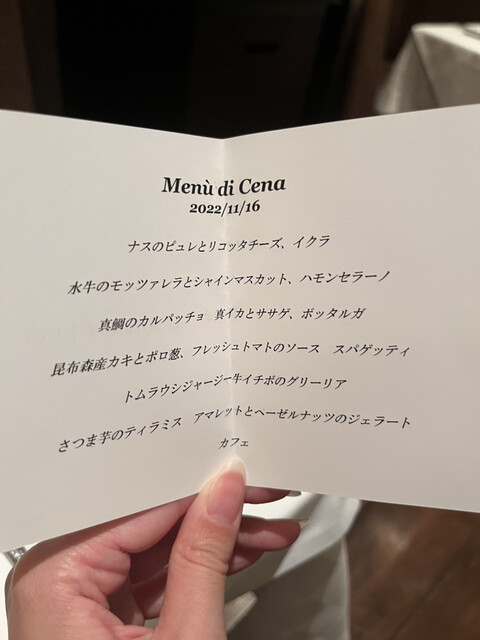 Menù di Cena
2022/11/16
ナスのピュレとリコッタチーズ、イクラ
水牛のモッツァレラとシャインマスカット、ハモンセラーノ
真鯛のカルパッチョ 真イカとササゲ、ボッタルガ
昆布森産カキとポロ葱、フレッシュトマトのソース スパゲッティ
トムラウシジャージー牛イチボのグリーリア
さつま芋のティラミス アマレットとヘーゼルナッツのジェラート
カフェ